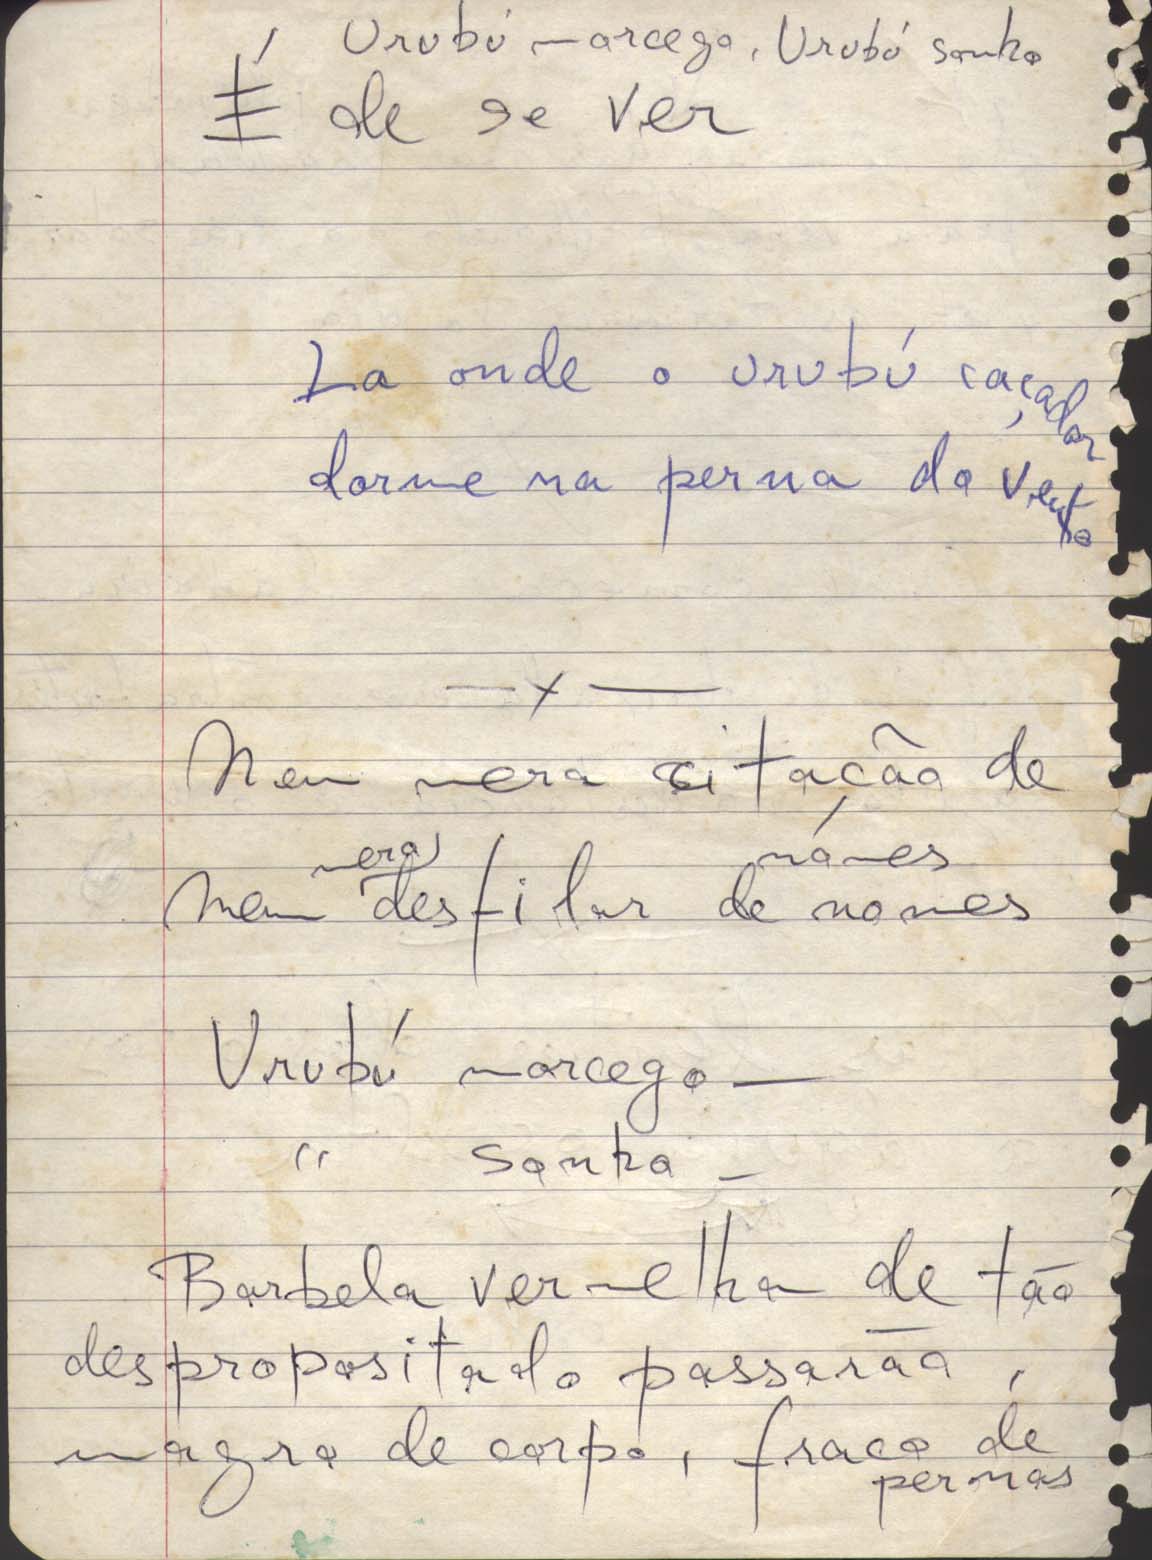 Urubú marcego, Urubú sonho
É de se ver
La onde o urubú caçador
dorme na perna do vento
— x —
Nem mera citação de
mera nómes
Nem desfilar de nomes
Urubú morcego —
" sonho —
Barbela vermelha de tão
despropositado passarão,
magro de corpo, fraco de
pernas